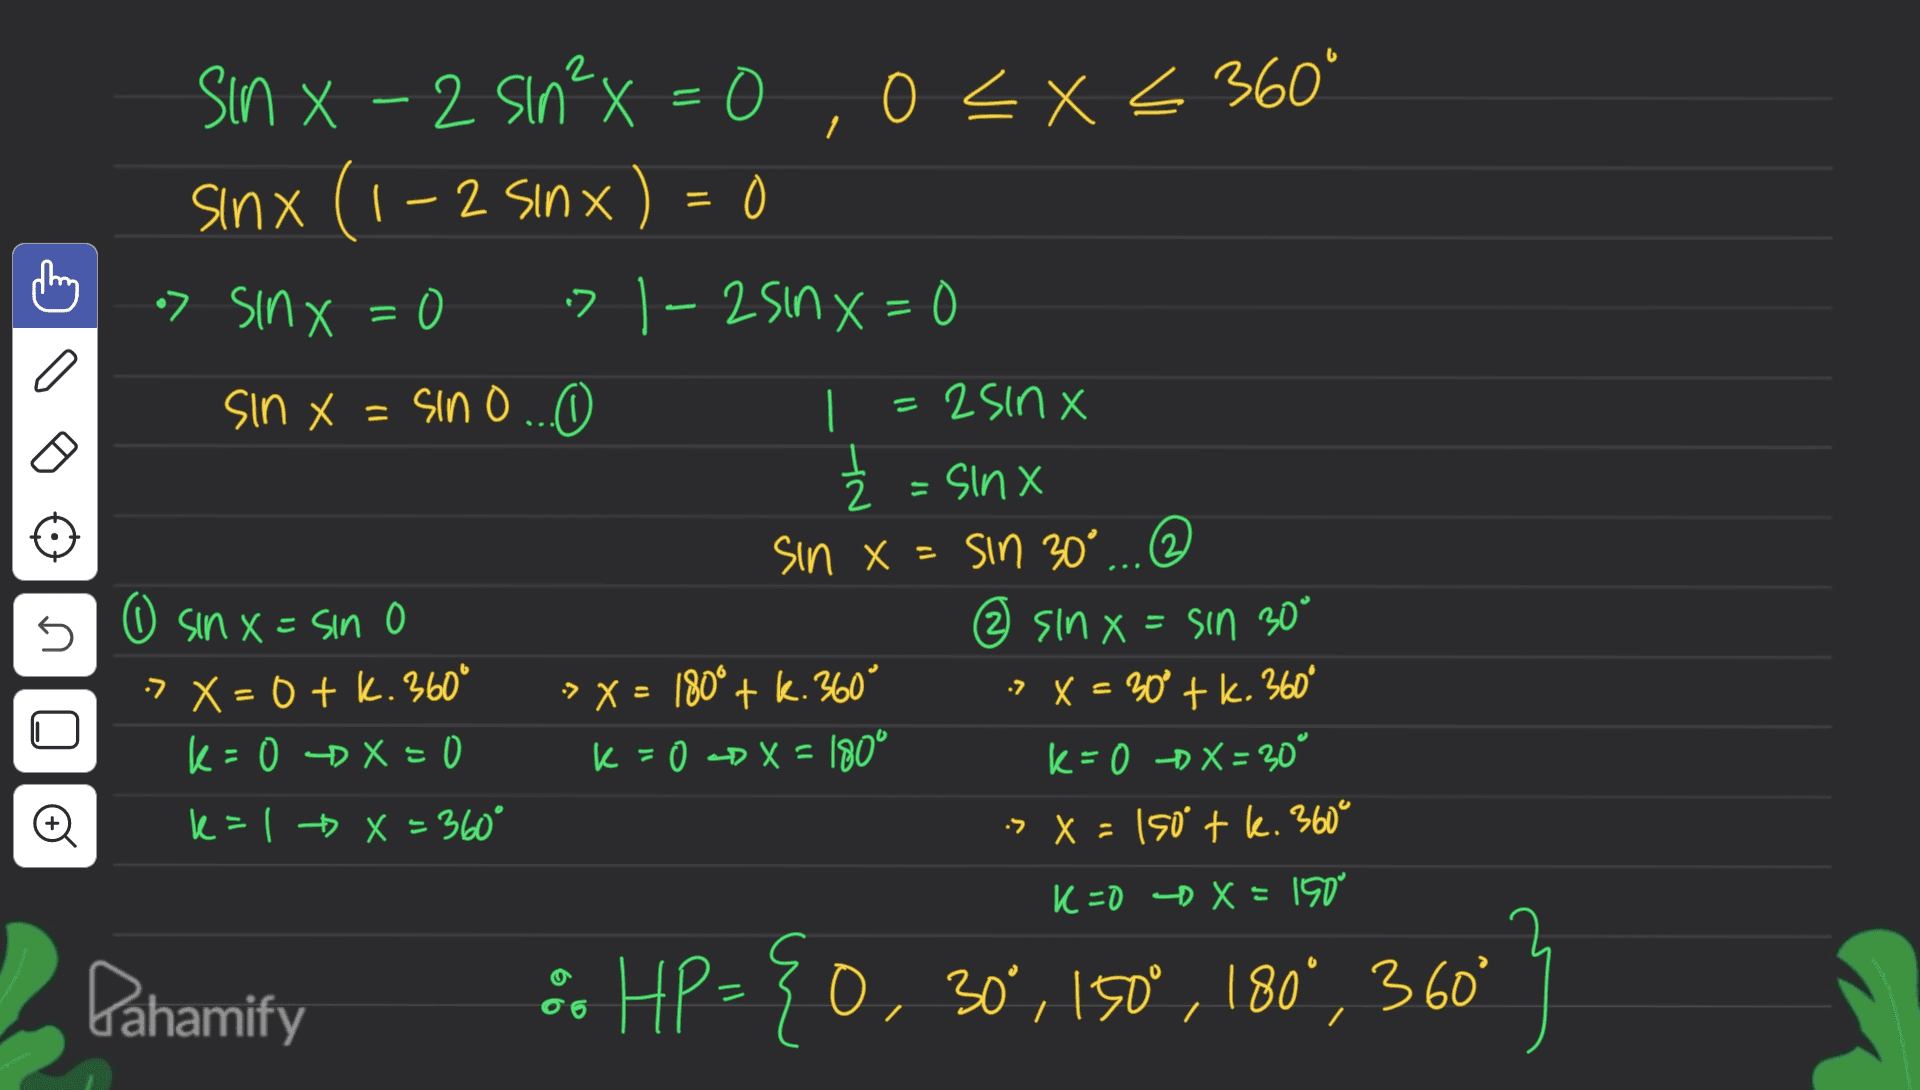 sin x - 2 sin²x = 0 , 0 ≤ x ≤ 360°
sin x (1 - 2 sin x) = 0
•> sin x = 0 •> 1 - 2 sin x = 0
sin x = sin 0 ...① 1 = 2 sin x
1/2 = sin x
sin x = sin 30° ...②
① sin x = sin 0 ② sin x = sin 30°
•> x = 0 + k.360° •> x = 180° + k.360° •> x = 30° + k.360°
k = 0 → x = 0 k = 0 → x = 180° k = 0 → x = 30°
k = 1 → x = 360° •> x = 150° + k.360°
k = 0 → x = 150°
∴ HP = {0, 30°, 150°, 180°, 360°}
Pahamify